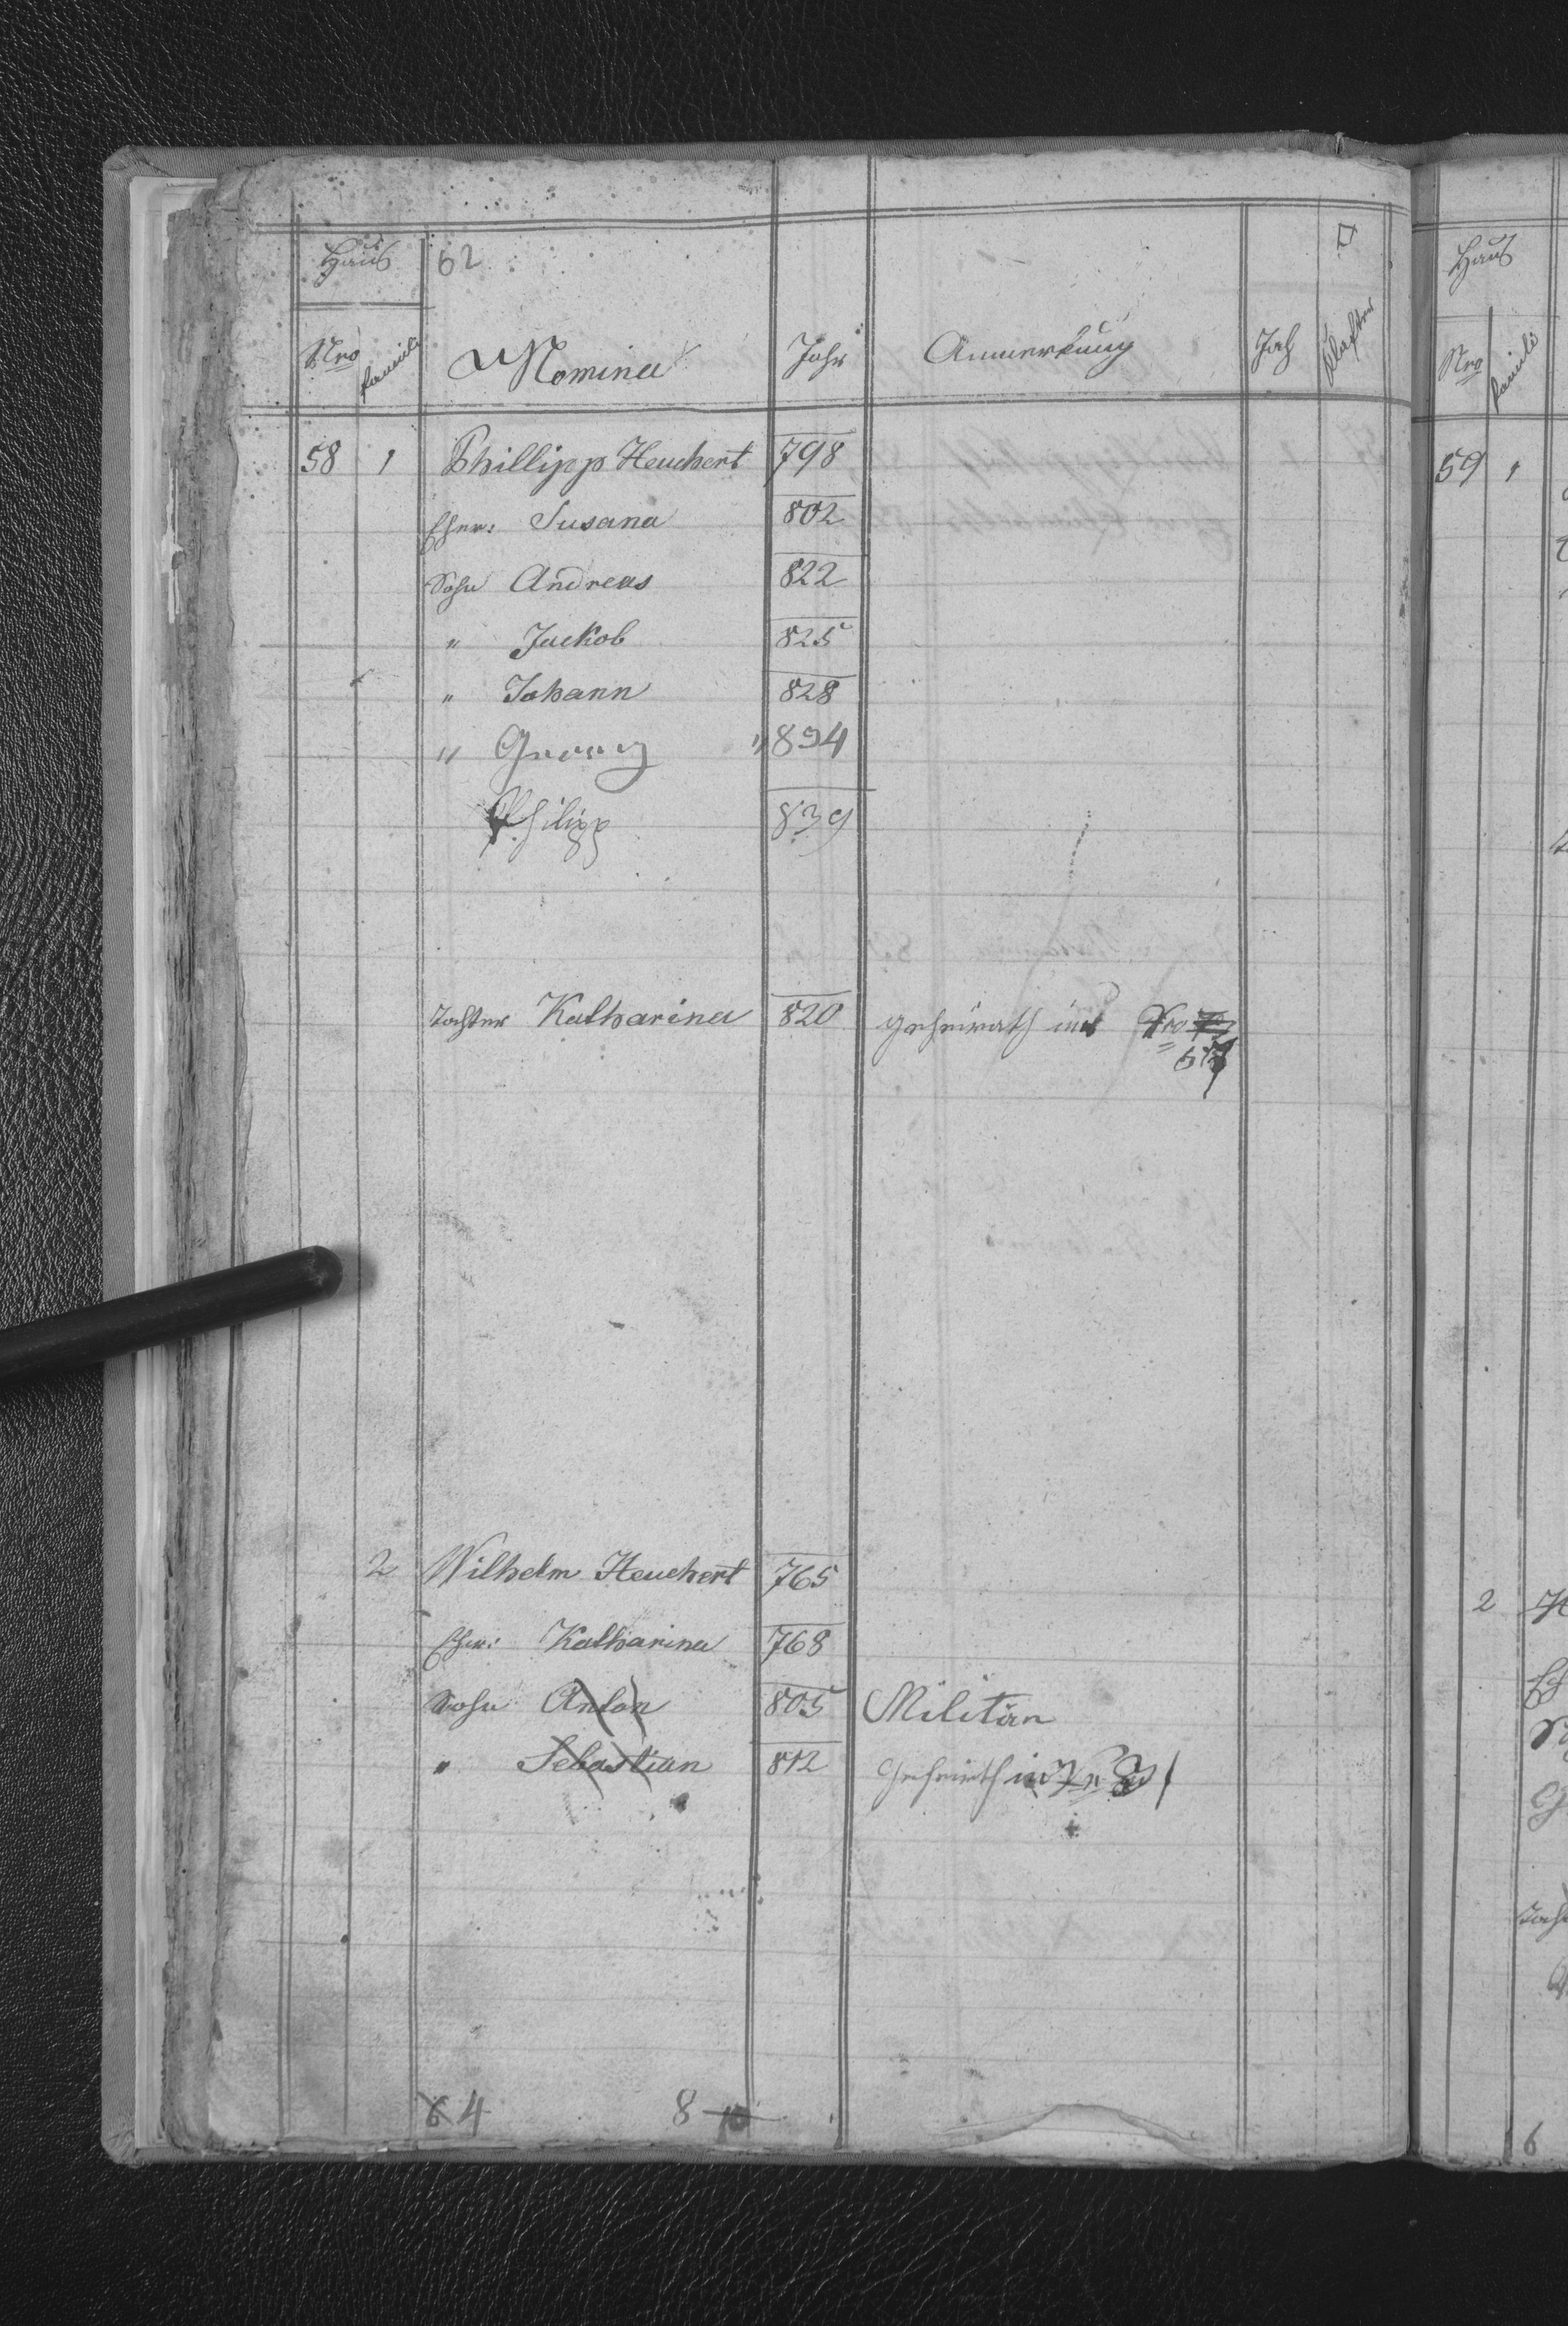 Haus 62
Nro familie Nomina Jahr Anmerkung Joch Klafter
58 1 Phillipp Heuchert 798
Ehew: Susana 802
Sohn Andreas 822
" Jackob 825
" Johann 828
" Georg " 834
Philipp 839
Tochter Katharina 820 geheirath in Nro
2 Wilhelm Heuchert 765
Ehw: Katharina 768
Sohn Anton 805 Militär
" Sebastian 812 Geheirath in Nr
6 4 8 10
Haus
Nro familie
59 1
2
6